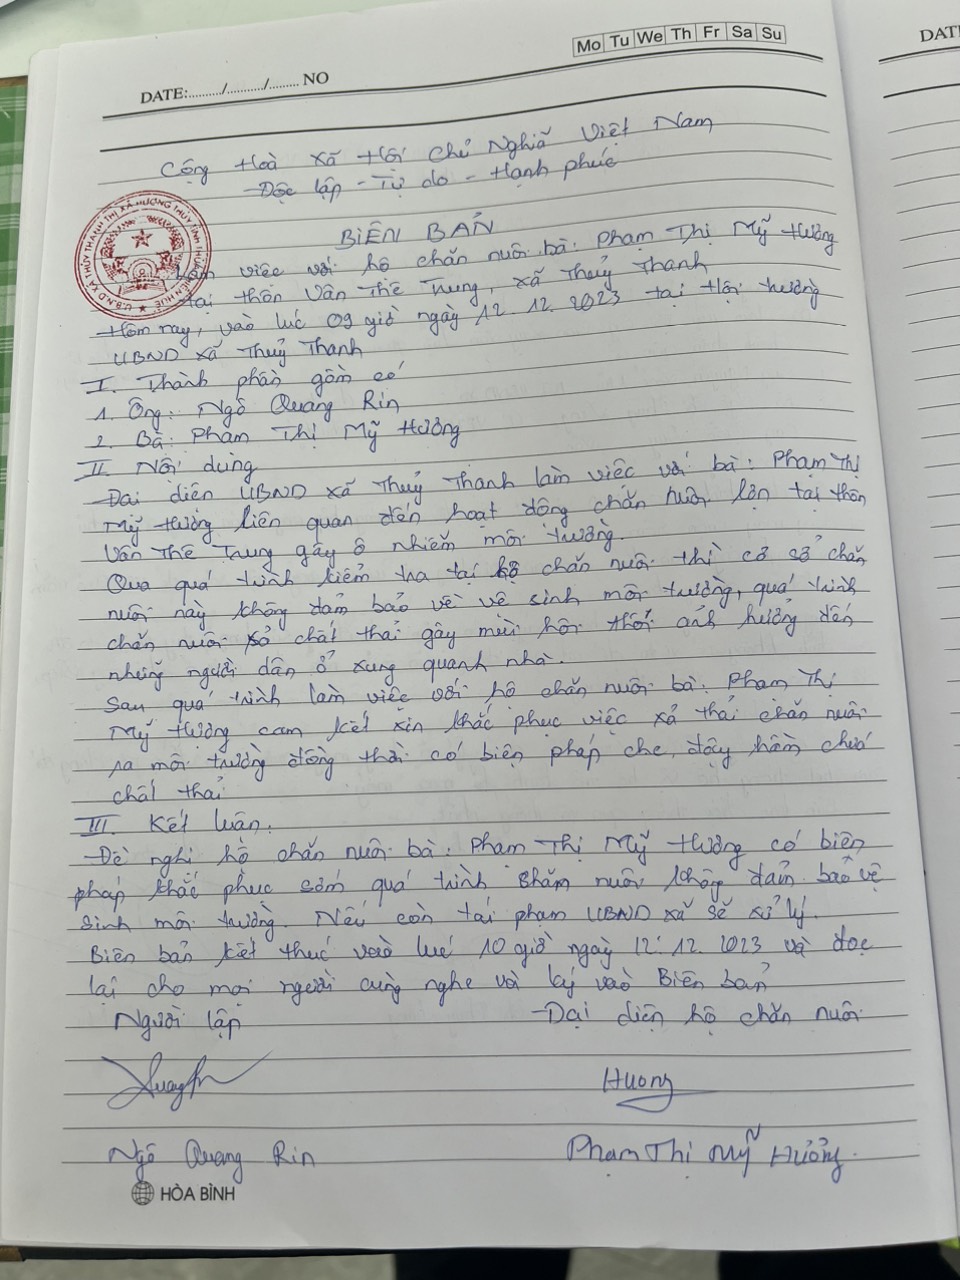 Mo Tu We Th Fr Sa Su
DATE:........./........../........ NO
DATE
Cộng Hoà Xã Hội Chủ Nghĩa Việt Nam
Độc lập - Tự do - Hạnh phúc
BIÊN BẢN
Làm việc với hộ chăn nuôi bà: Phạm Thị Mỹ Hường
tại thôn Vân Thê Trung, xã Thuỷ Thanh
Hôm nay, vào lúc 09 giờ ngày 12.12.2023 tại Hội trường
UBND xã Thuỷ Thanh
I. Thành phần gồm có
1. Ông: Ngô Quang Rin
2. Bà: Phạm Thị Mỹ Hường
II. Nội dung
Đại diện UBND xã Thuỷ Thanh làm việc với bà: Phạm Thị
Mỹ Hường liên quan đến hoạt động chăn nuôi lợn tại thôn
Vân Thê Trung gây ô nhiễm môi trường.
Qua quá trình kiểm tra tại hộ chăn nuôi thì cơ sở chăn
nuôi này không đảm bảo về vệ sinh môi trường, quá trình
chăn nuôi xả chất thải gây mùi hôi thối ảnh hưởng đến
những người dân ở xung quanh nhà.
Sau quá trình làm việc với hộ chăn nuôi bà: Phạm Thị
Mỹ Hường cam kết xin khắc phục việc xả thải chăn nuôi
ra môi trường đồng thời có biện pháp che, đậy hầm chứa
chất thải
III. Kết luận:
Đề nghị hộ chăn nuôi bà: Phạm Thị Mỹ Hường có biện
pháp khắc phục sớm quá trình chăm nuôi không đảm bảo vệ
sinh môi trường. Nếu còn tái phạm UBND xã sẽ xử lý.
Biên bản kết thúc vào lúc 10 giờ ngày 12.12.2023 và đọc
lại cho mọi người cùng nghe và ký vào Biên bản
Người lập Đại diện hộ chăn nuôi
Huong
Ngô Quang Rin Phạm Thị Mỹ Hường.
HÒA BÌNH
U.B.N.D XÃ THỦY THANH THỊ XÃ HƯƠNG THỦY TỈNH THỪA THIÊN HUẾ